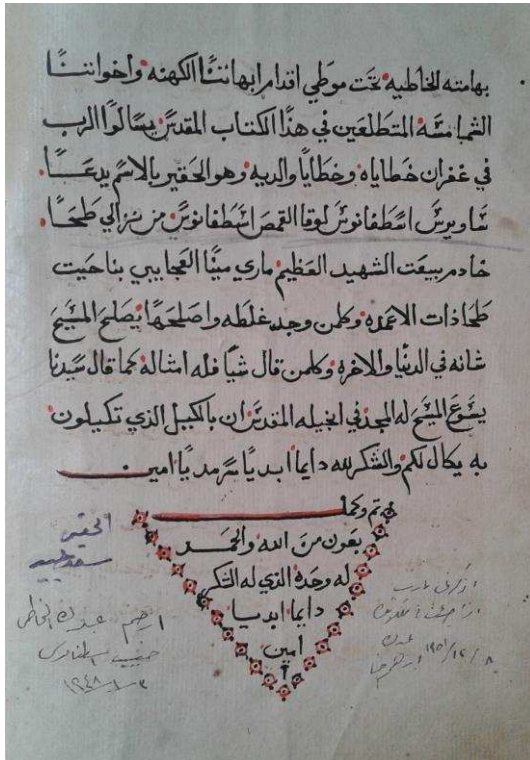 بهامته الخاطيه تحت موطي اقدام ابهاتنا الكهنه واخواتنا
الشمامسه المتطلعين في هذا الكتاب المقدس يسالوا الرب
في غفران خطاياه وخطايا والديه وهو الحقير بالاسم يدعا
شاويرس اسطفانوس لوقا القمص اسطفانوس من نزالي طحا
خادم بيعت الشهيد العظيم ماري مينا العجايبي بناحيت
طحا ذات الاعمده وكلمن وجد غلطه واصلحها يصلح المسيح
شانه في الدنيا والاخره وكلمن قال شيا فله امثاله كما قال سيدنا
يسوع المسيح له المجد في انجيله المقدس ان بالكيل الذي تكيلون
به يكال لكم والشكر لله دايما ابديا سرمديا امين
تم وكمل
بعون من الله والحمد
له وحده الذي له الشكر
دايما ابديا
امين
الحقير
اذكر يارب
ارحم عبدك الخاطي
عبدك
٨/١٢/١٩٥١